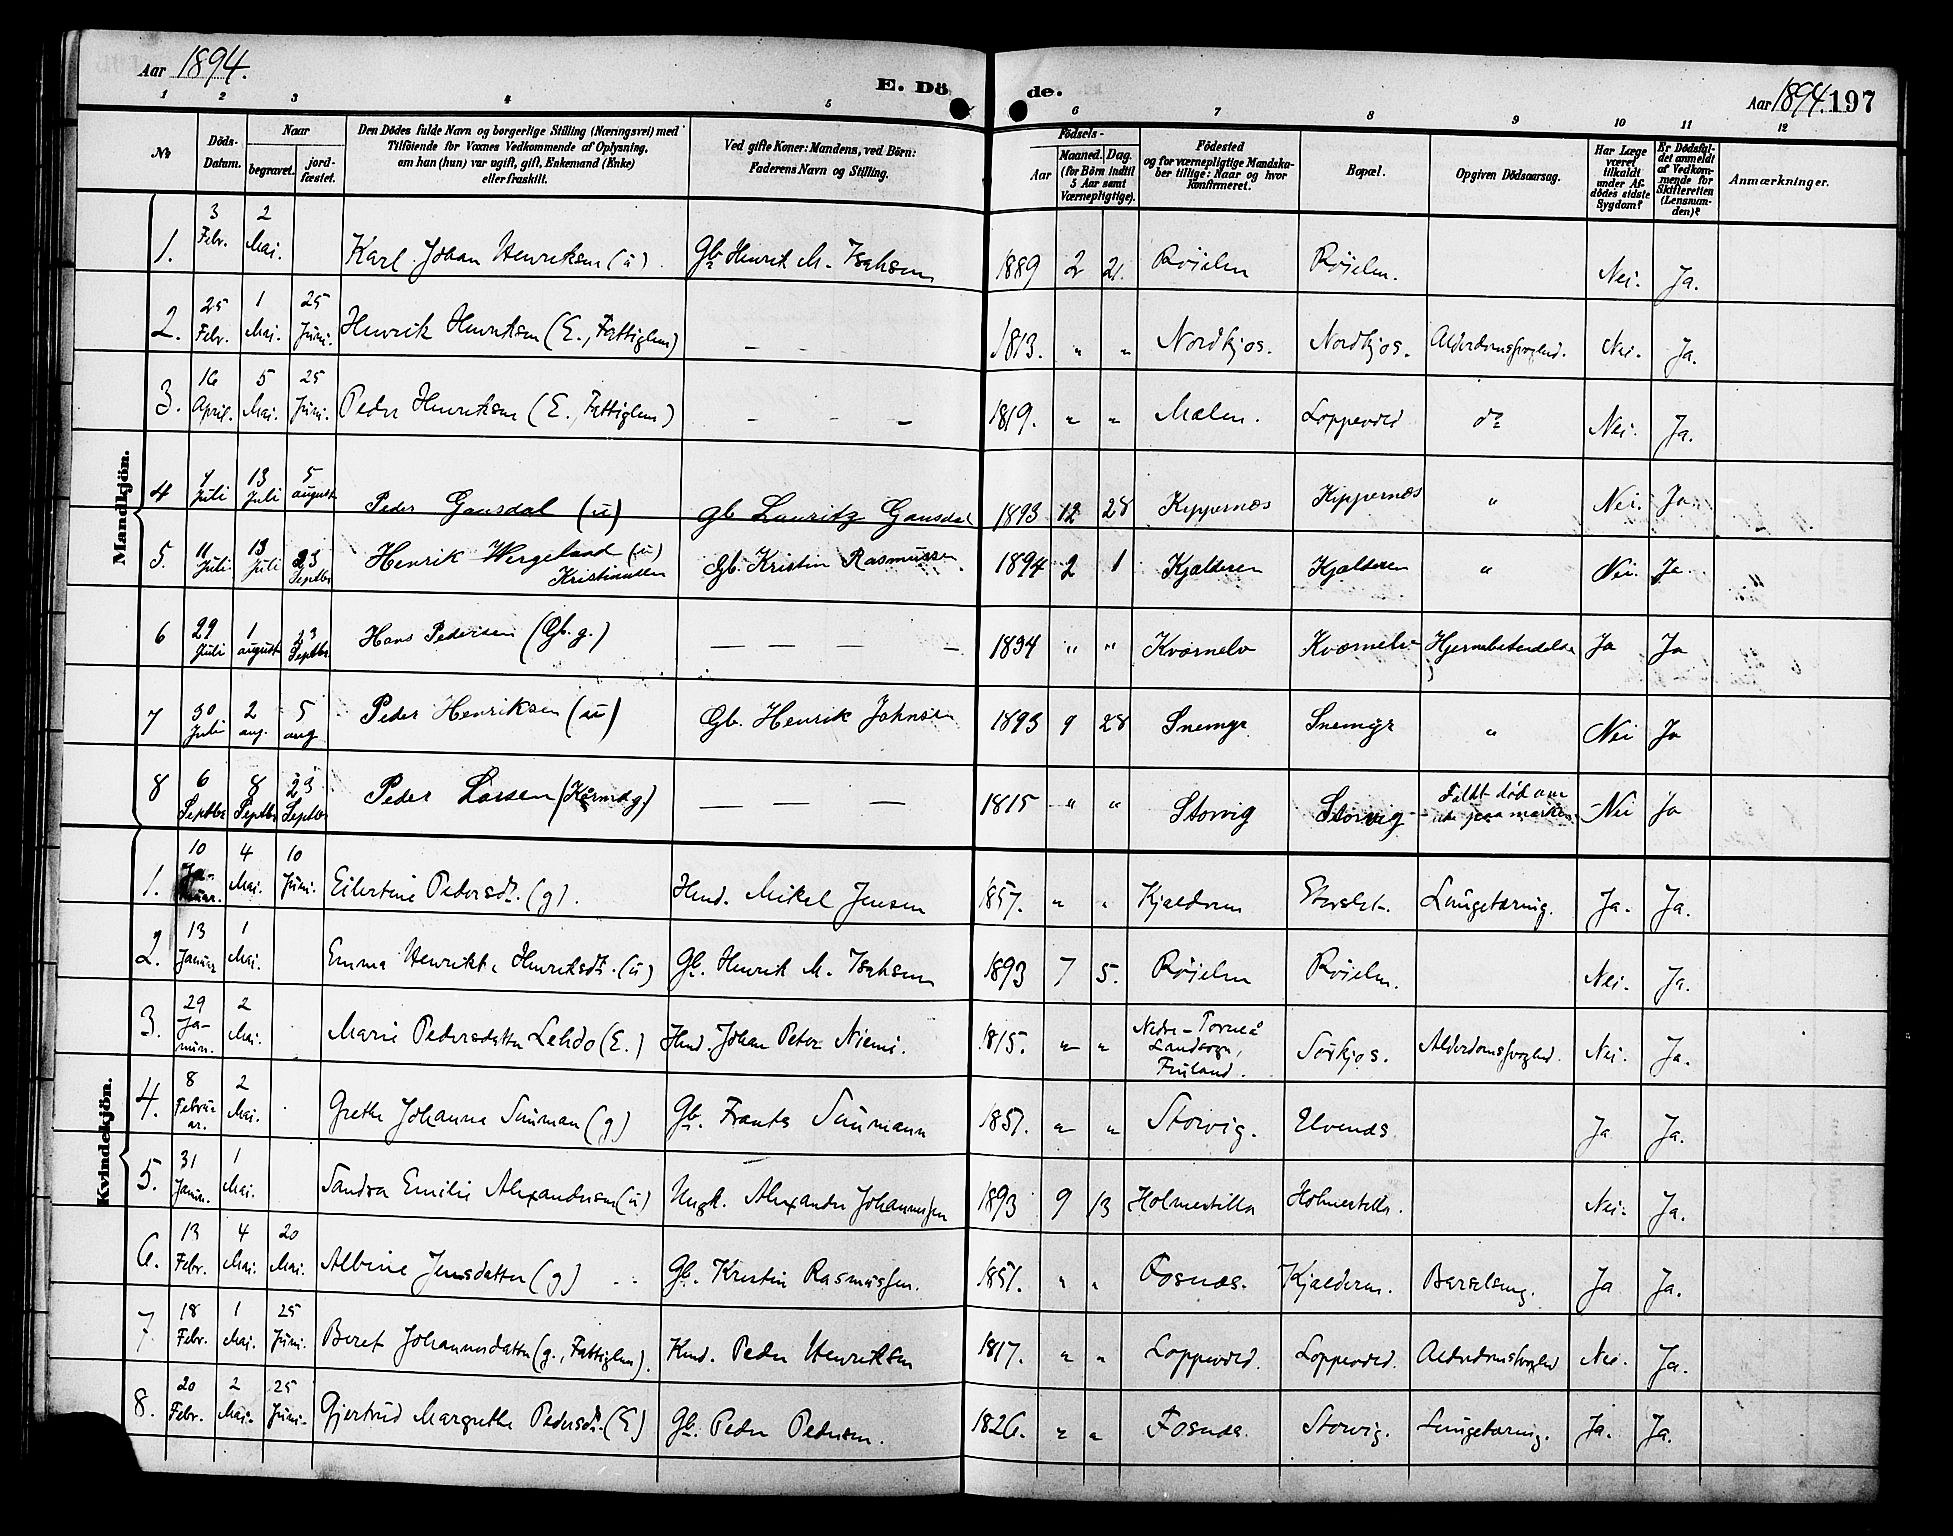 Aar 1894.
E. Dö de.
Aar 1894. 197
1 2 3 4 5 6 7 8 9 10 11 12
№
Döds-Datum.
Naar
begravet.
jordfæstet.
Den Dödes fulde Navn og borgerlige Stilling (Næringsvei) med Tilföiende for Voxnes Vedkommende af Oplysning, om han (hun) var ugift, gift, Enkemand (Enke) eller fraskilt.
Ved gifte Koner: Mandens, ved Börn: Faderens Navn og Stilling.
Födsels-
Aar
Maaned. Dag.
(for Börn indtil 5 Aar samt Værnepligtige).
Födested og for værnepligtige Mandskaber tillige: Naar og hvor konfirmeret.
Bopæl.
Opgiven Dödsaarsag.
Har Læge været tilkaldt under Afdödes sidste Sygdom?
Er Dödsfaldet anmeldt af Vedkommende for Skifteretten (Lensmanden)?
Anmærkninger.
Mandkjön.
1. 3 Febr. 2 Mai. Karl Johan Henriksen (u). Gb. Henrik M. Isaksen 1889 2 21. Röielen Röielen. Nei. Ja.
2. 25 Febr. 1 Mai. 25 Juni. Henrik Henriksen (E., Fattiglem) - - - 1813. " " Nordkjos. Nordkjos. Alderdomssvaghed. Nei. Ja.
3. 16 April. 5 Mai. 25 Juni. Peder Henriksen (E., Fattiglem) - - - 1819. " " Mælen. Loppevold do Nei. Ja.
4 7 Juli 13 Juli 5 august Peder Gausdal (u) Gb Lauritz Gausdal 1893 12 28 Kippernæs Kippernæs " Nei. Ja.
5. 11 Juli 13 Juli 23 Septbr Henrik Wergeland (u) Kristiansen Gb. Kristin Rasmussen 1894 2 1 Kjælderen Kjælderen " Nei. Ja.
6 29 Juli 1 august 23 Septbr. Hans Pedersen (Gb. g.) — — — — 1834 " " Kværnelv Kværnelv Hjernebetændelse Ja Ja
7 30 Juli 2 aug. 5 aug Peder Henriksen (u) Gb. Henrik Johnsen 1893 9 28 Snemyr Snemyr " Nei Ja
8 6 Septbr 8 Septbr 23 Septbr Peder Larsen (Kårmd g.) — — — 1815 " " Storvig Storvig Faldt död om ude paa marken. Nei Ja
Kvindekjön.
1. 10 Januar. 4 Mai. 10 Juni. Eilertine Pedersdtr. (g). Hmd. Mikel Jensen 1857. " " Kjældern Storslet. Lungetæring. Ja. Ja.
2. 13 Januar 1 Mai. Emma Henrikke Henriksdtr. (u) Gb. Henrik M. Isaksen 1893 7 5. Röielen Röielen. Nei. Ja.
3. 29 Januar. 2 Mai. Marie Pedersdatter Lehdo (E.) Hmd. Johan Peter Niemi. 1815. " " Nedre-Torneå Landsogn, Finland. Sörkjos. Alderdomssvaghed. Nei. Ja.
4. 8 Februar. 2 Mai. Grethe Johanna Sauman (g) Gb. Frants Saumann 1851. " " Storvig. Elvenæs. Ja Ja.
5. 31 Januar. 1 Mai. Sandra Emilie Alexandersen (u) Ungk. Alexander Johannessen 1893 9 13 Holmestilla Holmestilla. Nei. Ja.
6. 13 Febr. 4 Mai. 20 Mai. Albine Jensdatter (g) Gb. Kristin Rasmussen. 1851. " " Fosnæs. Kjælderen. Barselseng. Ja Ja.
7. 18 Febr. 1 Mai. 25 Juni. Beret Johannesdatter (g., Fattiglem). Kmd. Peder Henriksen 1817. " " Loppevold. Loppevold. Alderdomssvaghed Nei. Ja.
8. 20 Febr. 2 Mai. 25 Juni. Gjertrud Margrethe Pedersdtr. (E) Gb. Peder Pedersen. 1826. " " Fosnæs. Storvig. Lungetæring. Ja. Ja.